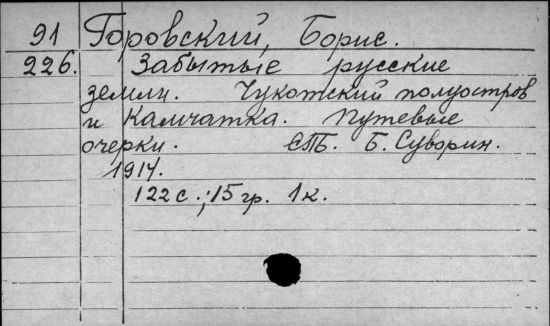 91 Горовский, Борис.
226. Забытые русские
земли. Чукотский полуостров
и Камчатка. Путевые
очерки. СПБ. Б. Суворин.
1914.
122 с.; 15 гр. 1 к.